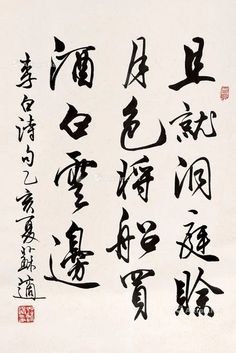 且就洞庭賒
月色將船買
酒白雲邊
李白詩句乙亥夏蘇適